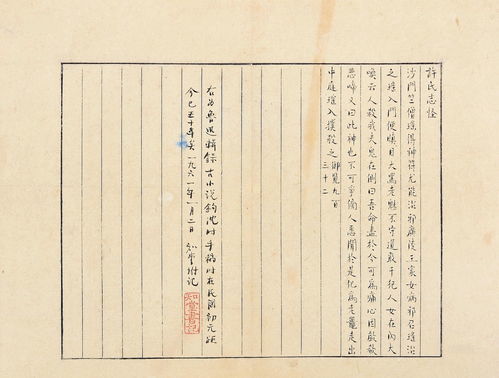 許氏志怪
沙門竺僧瑤得神符尤能治邪廣陵王家女病邪召瑤治
之瑤入門便瞋目大罵老魅不守道敢干犯人女在內大
喚云人殺我夫鬼在側曰吾命盡於今可為痛心因歔欷
悲啼又曰此神也不可爭傍人悉聞於是化為老鼉走出
中庭瑤入撲殺之 御覽九百
三十二
右為魯迅輯錄古小說鈎沈時手稿時在民國初元距
今已五十年矣一九六一年一月二日 知堂附記
知堂書記